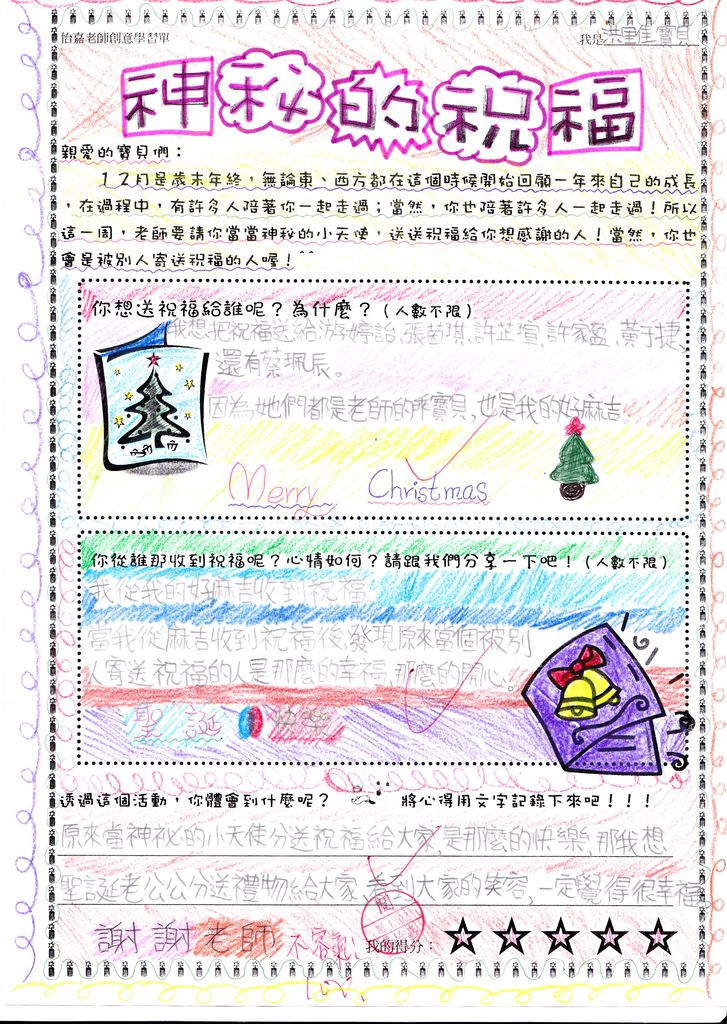 怡嘉老師創意學習單
我是洪里隹寶貝
神秘的祝福
親愛的寶貝們：
１２月是歲末年終，無論東、西方都在這個時候開始回顧一年來自己的成長
，在過程中，有許多人陪著你一起走過；當然，你也陪著許多人一起走過！所以
這一周，老師要請你當當神秘的小天使，送送祝福給你想感謝的人！當然，你也
會是被別人寄送祝福的人喔！^^
你想送祝福給誰呢？為什麼？（人數不限）
我想把祝福送給游婷詒、張苗琪、許芷瑄、許家盈、黃于捷、
還有蔡珮辰。
因為她們都是老師的乖寶貝，也是我的好麻吉。
Merry Christmas
你從誰那收到祝福呢？心情如何？請跟我們分享一下吧！（人數不限）
我從我的好麻吉收到祝福
當我從麻吉收到祝福後，發現原來當個被別
人寄送祝福的人是那麼的幸福，那麼的開心。
聖誕快樂
透過這個活動，你體會到什麼呢？ 將心得用文字記錄下來吧！！！
原來當神祕的小天使分送祝福給大家，是那麼的快樂，那我想
聖誕老公公分送禮物給大家，看到大家的笑容，一定覺得很幸福
謝謝老師 不客氣！ 我的得分：
閱